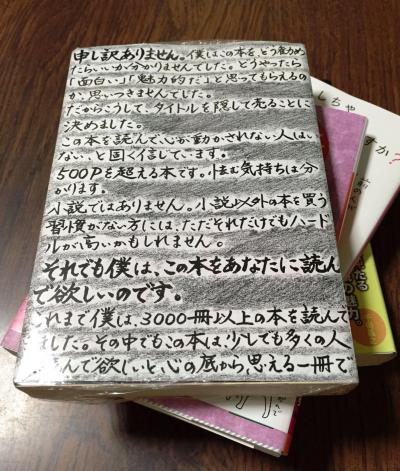 申し訳ありません。僕はこの本を、どう勧め
たらいいか分かりませんでした。どうやったら
「面白い」「魅力的だ」と思ってもらえるの
か、思いつきませんでした。
だからこうして、タイトルを隠して売ることに
決めました。
この本を読んで心が動かされない人はい
ない、と固く信じています。
500Pを超える本です。怯む気持ちは分
かります。
小説ではありません。小説以外の本を買う
習慣がない方には、ただそれだけでもハード
ルが高いかもしれません。
それでも僕は、この本をあなたに読ん
で欲しいのです。
これまで僕は、3000冊以上の本を読んで
ました。その中でもこの本は、少しでも多くの人
んで欲しいと、心の底から思える一冊で
しちゃ
すか?